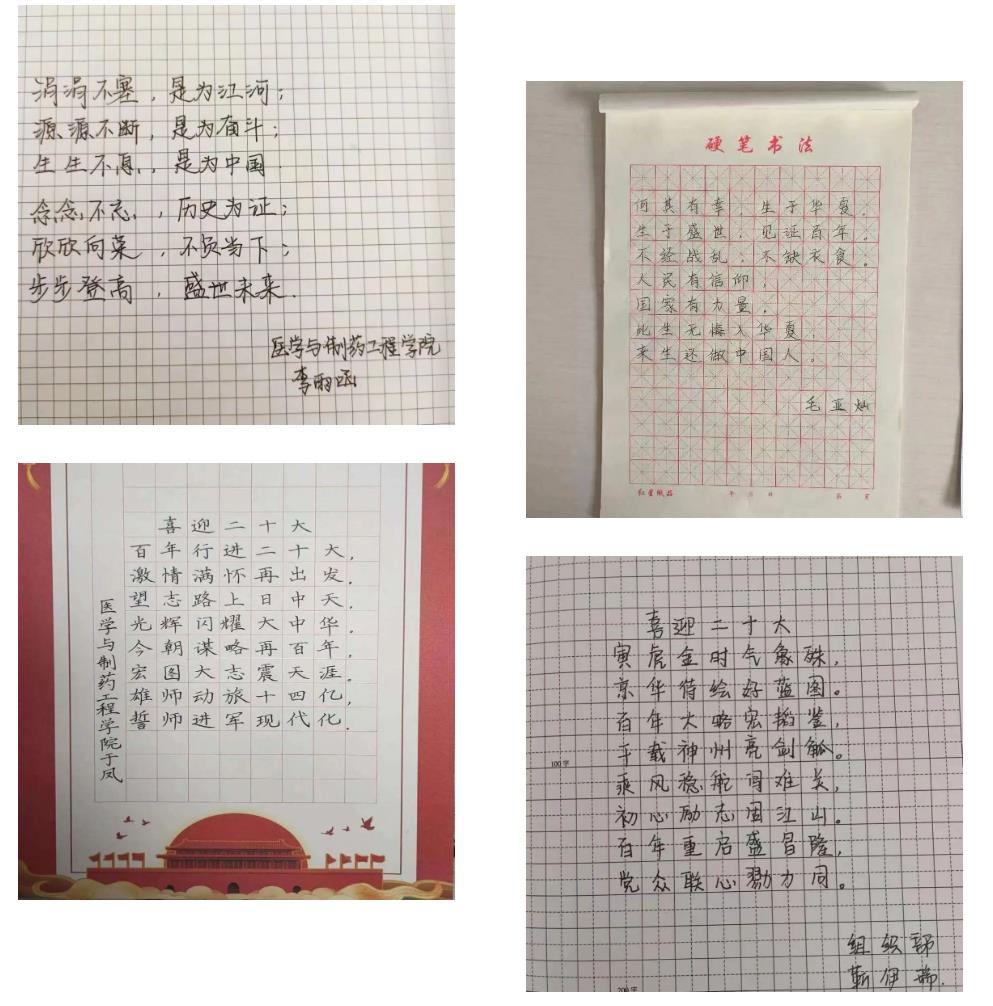 涓涓不塞，是为江河；
源源不断，是为奋斗；
生生不息，是为中国.
念念不忘，历史为证；
欣欣向荣，不负当下；
步步登高，盛世未来.
医学与制药工程学院
李雨函
硬笔书法
何其有幸，生于华夏，
生于盛世，见证百年。
不经战乱，不缺衣食。
人民有信仰，
国家有力量，
此生无悔入华夏，
来生还做中国人。
毛亚灿
红星纸品 年 月 日 第 页
喜迎二十大
百年行进二十大，
激情满怀再出发.
望志路上日中天，
光辉闪耀大中华.
今朝谋略再百年，
宏图大志震天涯.
雄师动旅十四亿，
誓师进军现代化.
医学与制药工程学院于凤
喜迎二十大
寅虎金时气象殊，
京华待绘好蓝图。
百年大略宏韬鉴，
平载神州亮剑觚。
100字
乘风稳舵闯难关，
初心励志固江山。
百年重启盛冒隆，
党众联心勠力同。
组织部
靳伊瑞.
200字